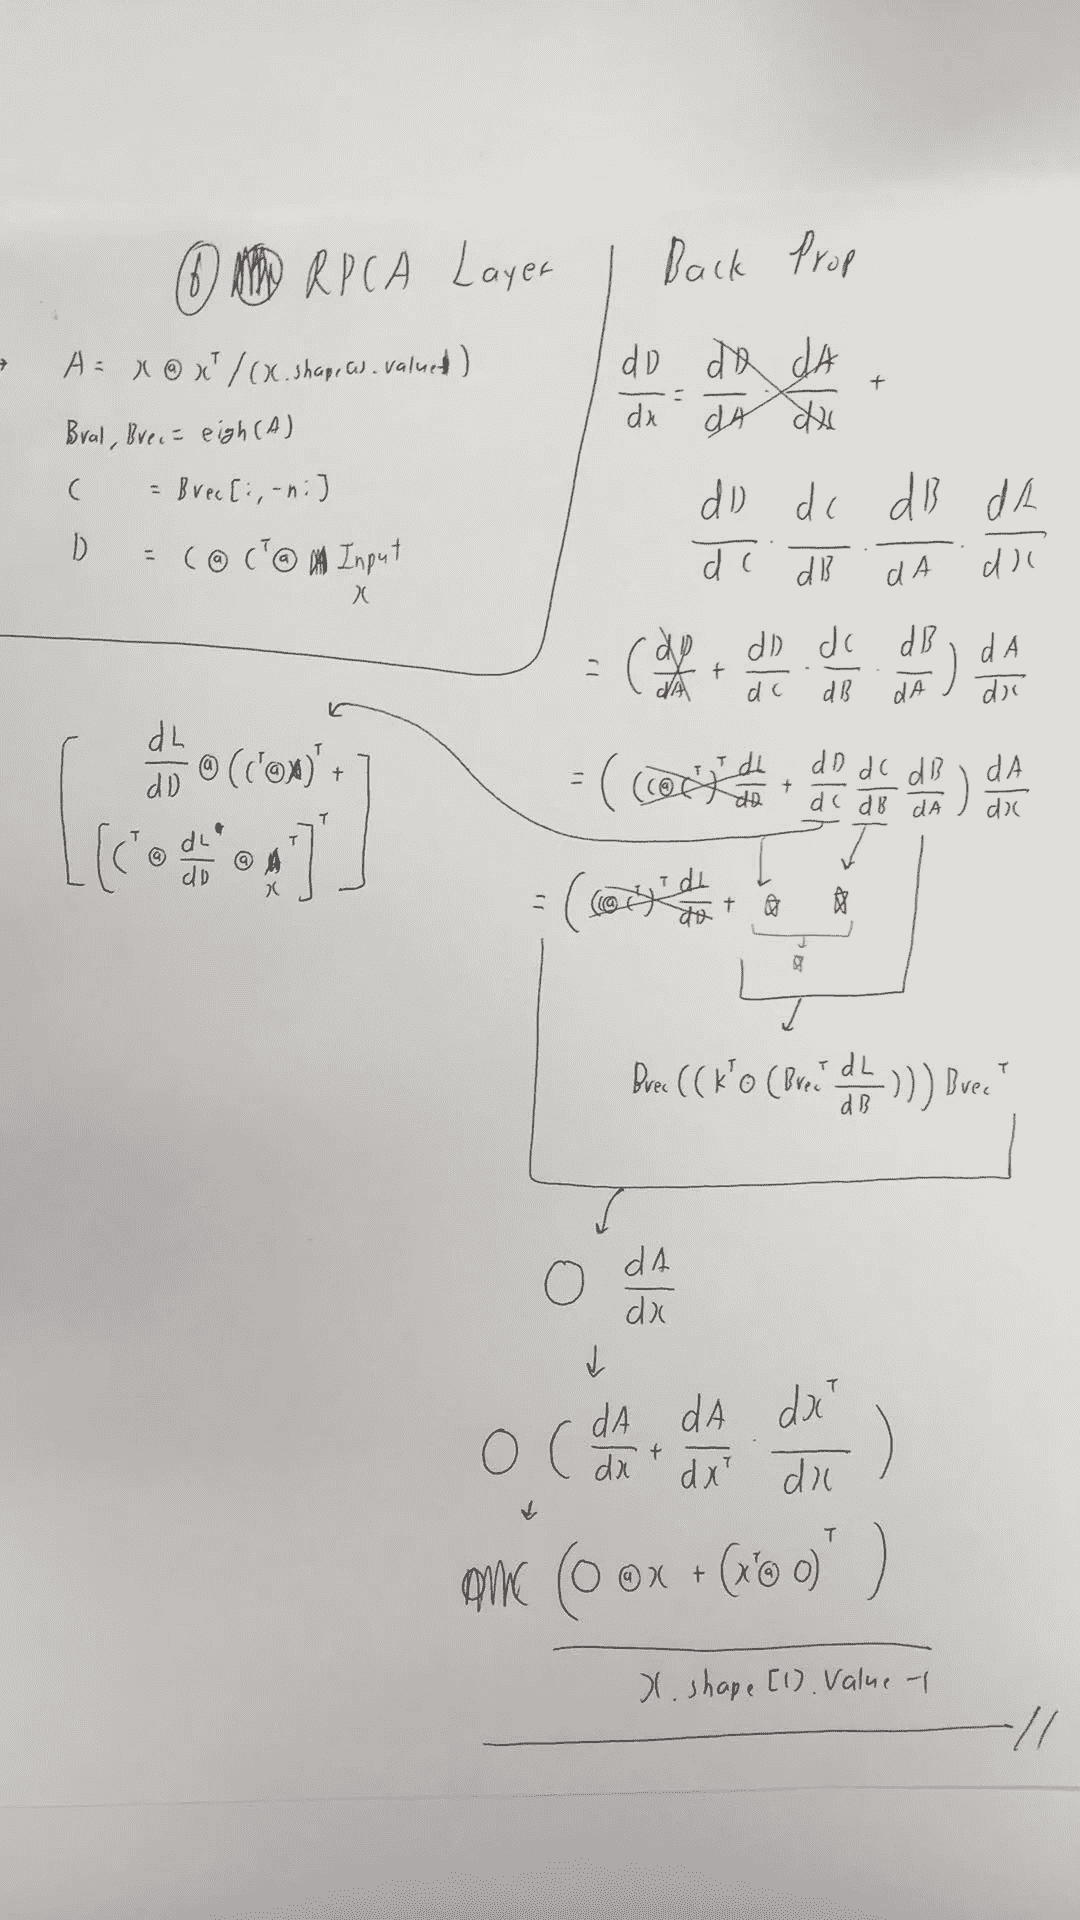 ⑥ RPCA Layer
A = x @ xᵀ / (x.shape(1).value-1)
Bval, Bvec = eigh(A)
C = Bvec[:,-n:]
D = C @ Cᵀ @ Input
x
Back Prop
dD/dx = dD/dA · dA/dx +
dD/dC · dC/dB · dB/dA · dA/dx
= (dD/dA + dD/dC · dC/dB · dB/dA) dA/dx
= ((C@Cᵀ)ᵀ dL/dD + dD/dC dC/dB dB/dA) dA/dx
[dL/dD @ (Cᵀ@x)ᵀ +
[Cᵀ @ dL/dD @ xᵀ]ᵀ]
= ((C@Cᵀ)ᵀ dL/dD +
Bvec((Kᵀ⊙(Bvecᵀ dL/dB)))Bvecᵀ
O dA/dx
O (dA/dx + dA/dxᵀ · dxᵀ/dx)
(O @ x + (xᵀ@ O)ᵀ)
x.shape[1].value -1
//